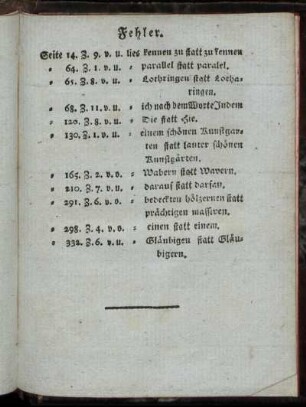 Fehler.
Seite 14. Z. 9. v. u. lies kennen zu statt zu kennen
" 64. Z. 1. v. u. " parallel statt paralel.
" 65. Z. 8. v. u. " Lothringen statt Lotha-
ringen.
" 68. Z. 11. v. u. " ich nach dem Worte Indem
" 120. Z. 8. v. u. " Die statt Hie.
" 130. Z. 1. v. u. " einem schönen Kunstgar-
ten statt lauter schönen
Kunstgärten.
" 165. Z. 2. v. o. " Wabern statt Wavern.
" 210. Z. 7. v. u. " darauf statt darfau,
" 291. Z. 6. v. o. " bedeckten hölzernen statt
prächtigen massiven.
" 298. Z. 4. v. o. " einen statt einem.
" 332. Z. 6. v. u. " Gläubigen statt Gläu-
bigern.